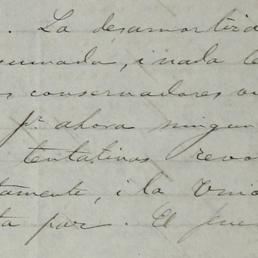 . La desamortiza
sumada, i nada le
s conservadores
pr ahora ningun
tentativas revo
tamente, i la Unio
ta paz. El gene